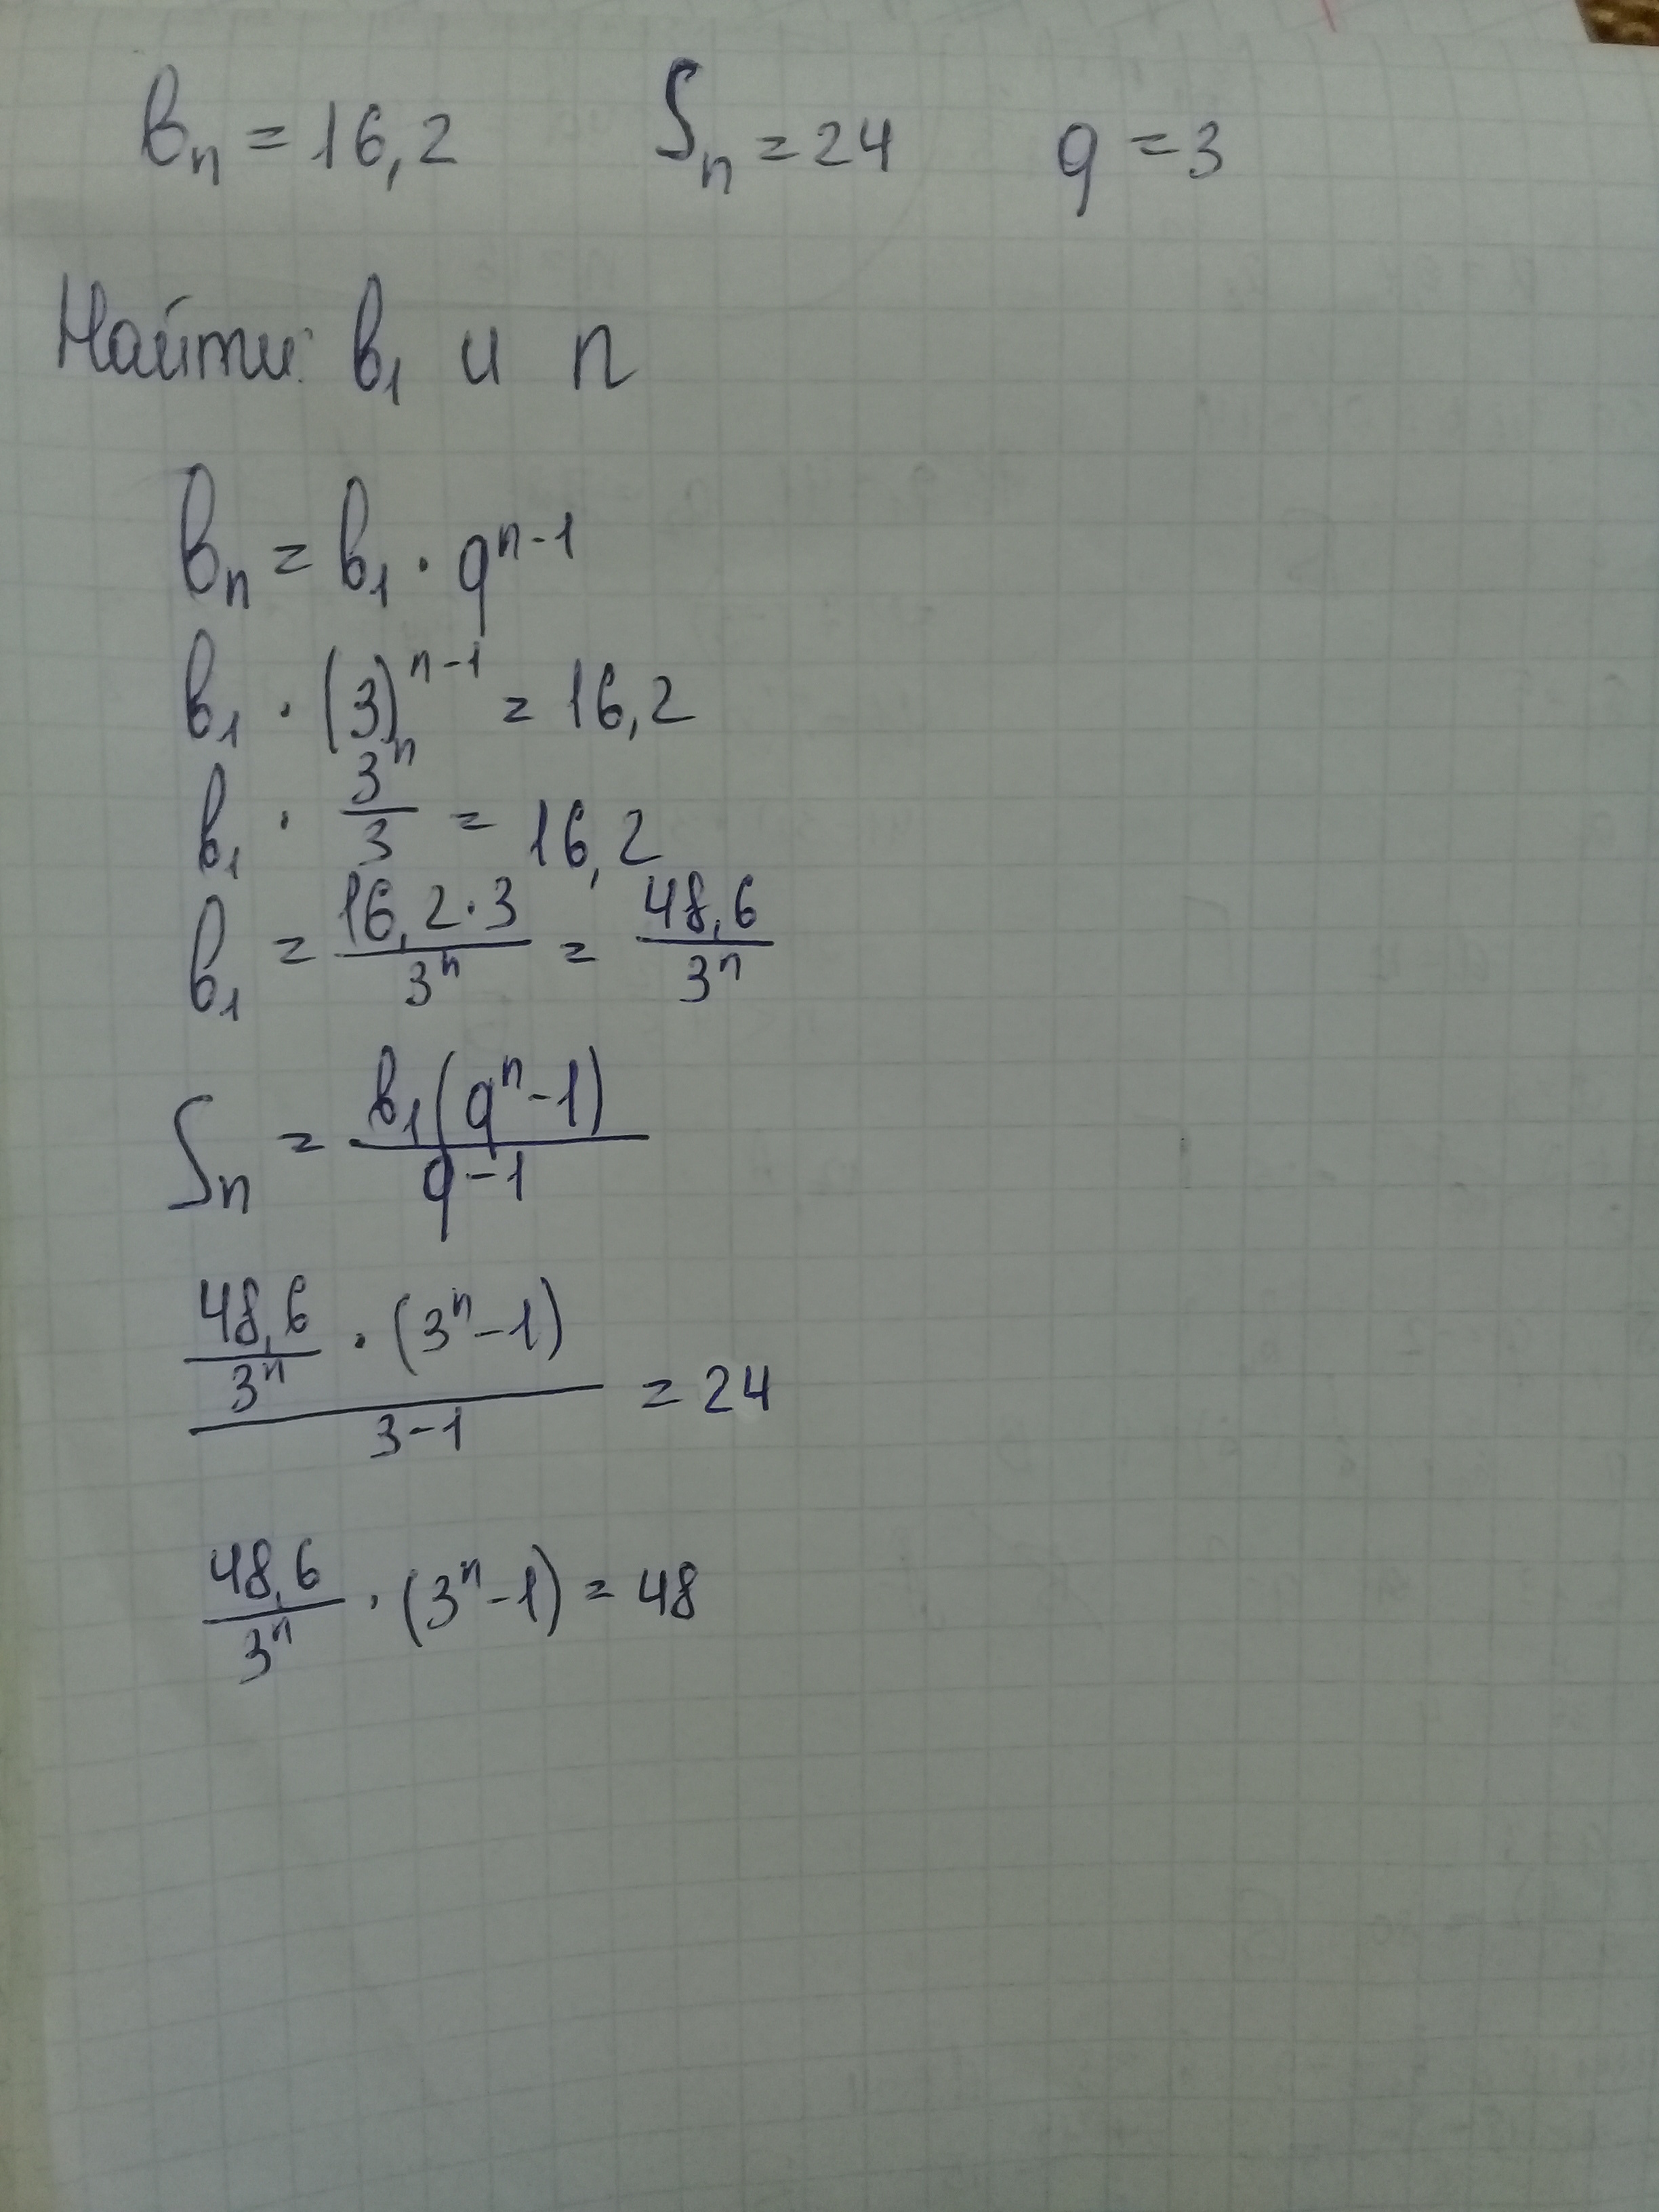 вn = 16,2 Sn = 24 q = 3
Найти: в₁ и n
вn = в₁ · qⁿ⁻¹
в₁ · (3)ⁿ⁻¹ = 16,2
в₁ · 3ⁿ/3 = 16,2
в₁ = 16,2·3/3ⁿ = 48,6/3ⁿ
Sn = в₁(qⁿ-1)/q-1
48,6/3ⁿ · (3ⁿ-1)/3-1 = 24
48,6/3ⁿ · (3ⁿ-1) = 48